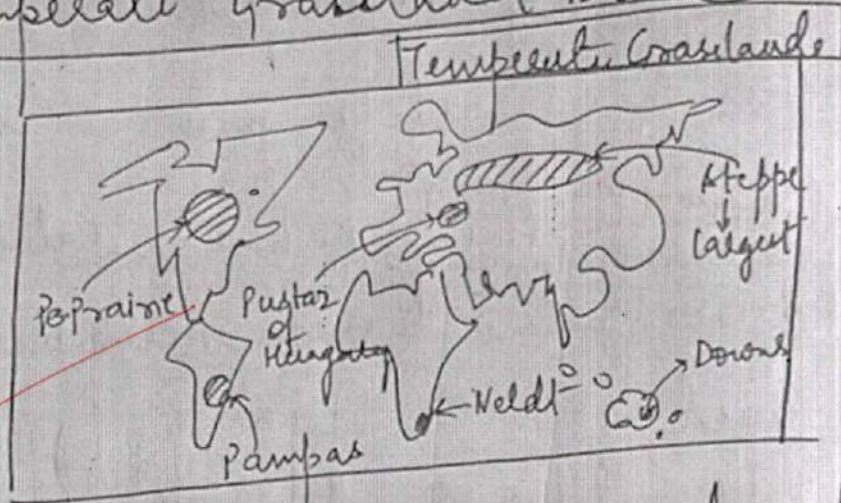 Temperate Grasslands
Steppe
largest
Prairie
Pustaz
of
Hungary
Downs
Veldt
Pampas